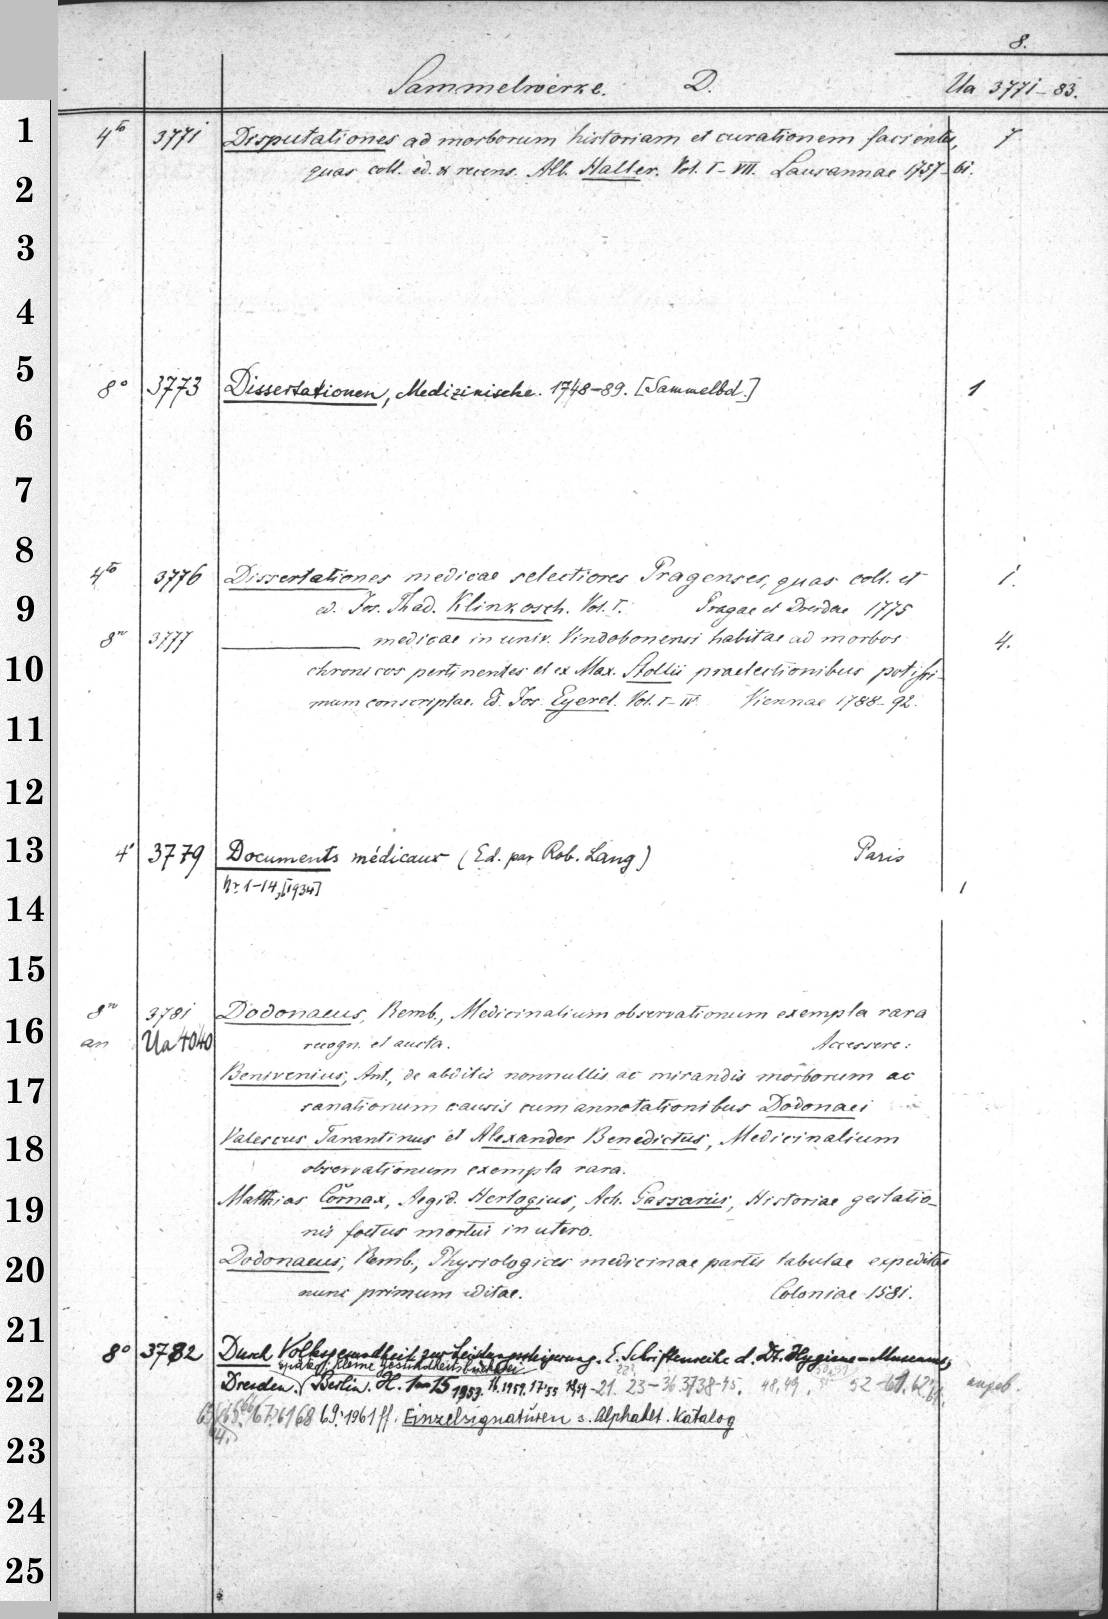 8.
Sammelwerke. D. Ua 3771-83.
1
4to 3771 Disputationes ad morborum historiam et curationem facientes, 7
2
quas coll. ed. et recens. Alb. Haller. Vol. I-VII. Lausannae 1757-61.
3
4
5
8° 3773 Dissertationen, Medizinische. 1748-89. [Sammelbd.] 1
6
7
8
4to 3776 Dissertationes medicae selectiores Pragenses, quas coll. et 1.
9
ed. Jos. Thad. Klinkosch. Vol. I. Pragae et Dresdae 1775
8vo 3777 ——— medicae in univ. Vindobonensi habitae ad morbos 4.
10
chronicos pertinentes et ex Max. Stollii praelectionibus potissi-
mum conscriptae. Ed. Jos. Eyerel. Vol. I-IV. Viennae 1788-92.
11
12
13
4° 3779 Documents médicaux (Ed. par Rob. Lang) Paris
Nr. 1-14, [1934] 1
14
15
8vo 3781 Dodonaeus, Remb., Medicinalium observationum exempla rara
16
an Ua 4040 recogn. et aucta. Accessere:
17
Benivenius, Ant., de abditis nonnullis ac mirandis morborum ac
sanationum causis cum annotationibus Dodonaei
18
Valescus Tarantinus et Alexander Benedictus, Medicinalium
observationum exempla rara.
19
Matthias Cornax, Aegid. Hertogius, Ach. Gassarus, Historiae gestatio-
nis foetus mortui in utero.
20
Dodonaeus, Remb., Physiologices medicinae partis tabulae expeditae
nunc primum editae. Coloniae 1581.
21
8° 3782 Durch Volksgesundheit zur Leistungssteigerung. E. Schriftenreihe d. Dt. Hygiene-Museums,
später: Kleine Gesundheitsbücherei
22
Dresden. (Berlin. H. 1-15 1953. 16.1951. 17.55 1954 -21. 23-36 37 38-45. 48.49. 52-61. 62 ungeb.
67 68 69. 1961 ff. Einzelsignaturen s. Alphabet. Katalog
23
24
25